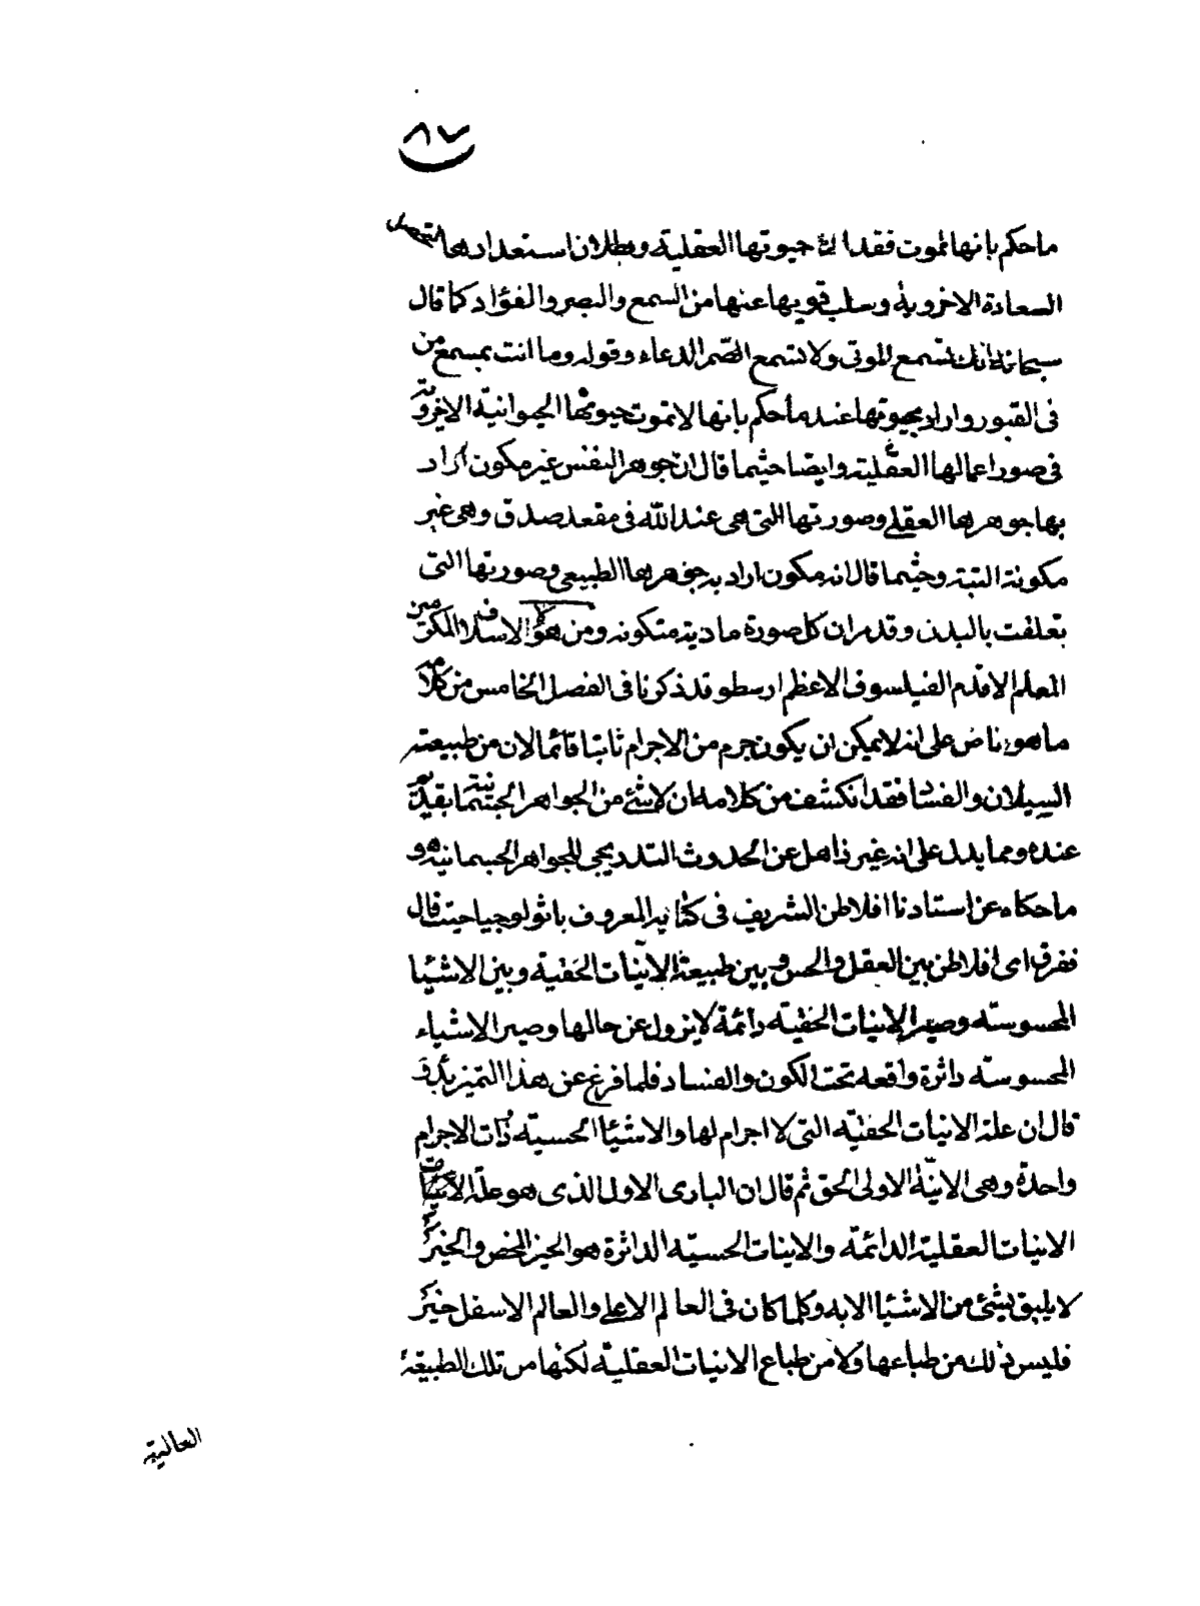 ٨٧
ما حكم بانها تموت فقدان حيوتها العقلية وبطلان استعدادها لتحصيل
السعادة الاخروية وسلب قويها عنها من السمع والبصر والفؤاد كما قال
سبحانه انك لا تسمع الموتى ولا تسمع الصم الدعاء وقوله وما انت بمسمع من
فى القبور واراد بحيوتها عند ما حكم بانها لا تموت حيوتها الحيوانية الاخروية
فى صور اعمالها العقلية وايضا حيثما قال ان جوهر النفس غير مكون اراد
بها جوهرها العقلى وصورتها التى هى عند الله فى مقعد صدق وهى غير
مكونة البتة وحيثما قال انه مكون اراد به جوهرها الطبيعى وصورتها التى
تعلقت بالبدن وقد مر ان كل صورة مادية متكونه ومن هؤلاء الاسلاف المكرمين
المعلم الاقدم الفيلسوف الاعظم ارسطو قد ذكرنا فى الفصل الخامس من كلامه
ما هو ناص على انه لا يمكن ان يكون جرم من الاجرام ثابتا قائما لان من طبيعته
السيلان والفساد فقد انكشف من كلامه ان لا شئ من الجواهر الجسمانية بقديم
عنده ومما يدل على انه غير ذاهل عن الحدوث التدريجى للجواهر الجسمانية هو
ما حكاه عن استادنا افلاطن الشريف فى كتابه المعروف باثولوجيا حيث قال
ففرق اى افلاطن بين العقل والحس وبين طبيعة الانيات الحقية وبين الاشيا
المحسوسته وصير الانيات الحقيه دائمة لا يزول عن حالها وصير الاشياء
المحسوسته داثرة واقعه تحت الكون والفساد فلما فرغ عن هذا التميز بدو
قال ان علة الانيات الحقيّه التى لا اجرام لها والاشيا الحسيته ذات الاجرام
واحدة وهى الانيّة الاولى الحق ثم قال ان البارى الاول الذى هو علة الانيات
الانيات العقلية الدائمة والانيات الحسيّه الداثرة هو الخير المحض والخير
لا يليق بشئ من الاشيا الا به وكلما كان فى العالم الاعلى والعالم الاسفل خير
فليس ذلك من طباعها ولا من طباع الانيات العقلية لكنها من تلك الطبيعة
العالية